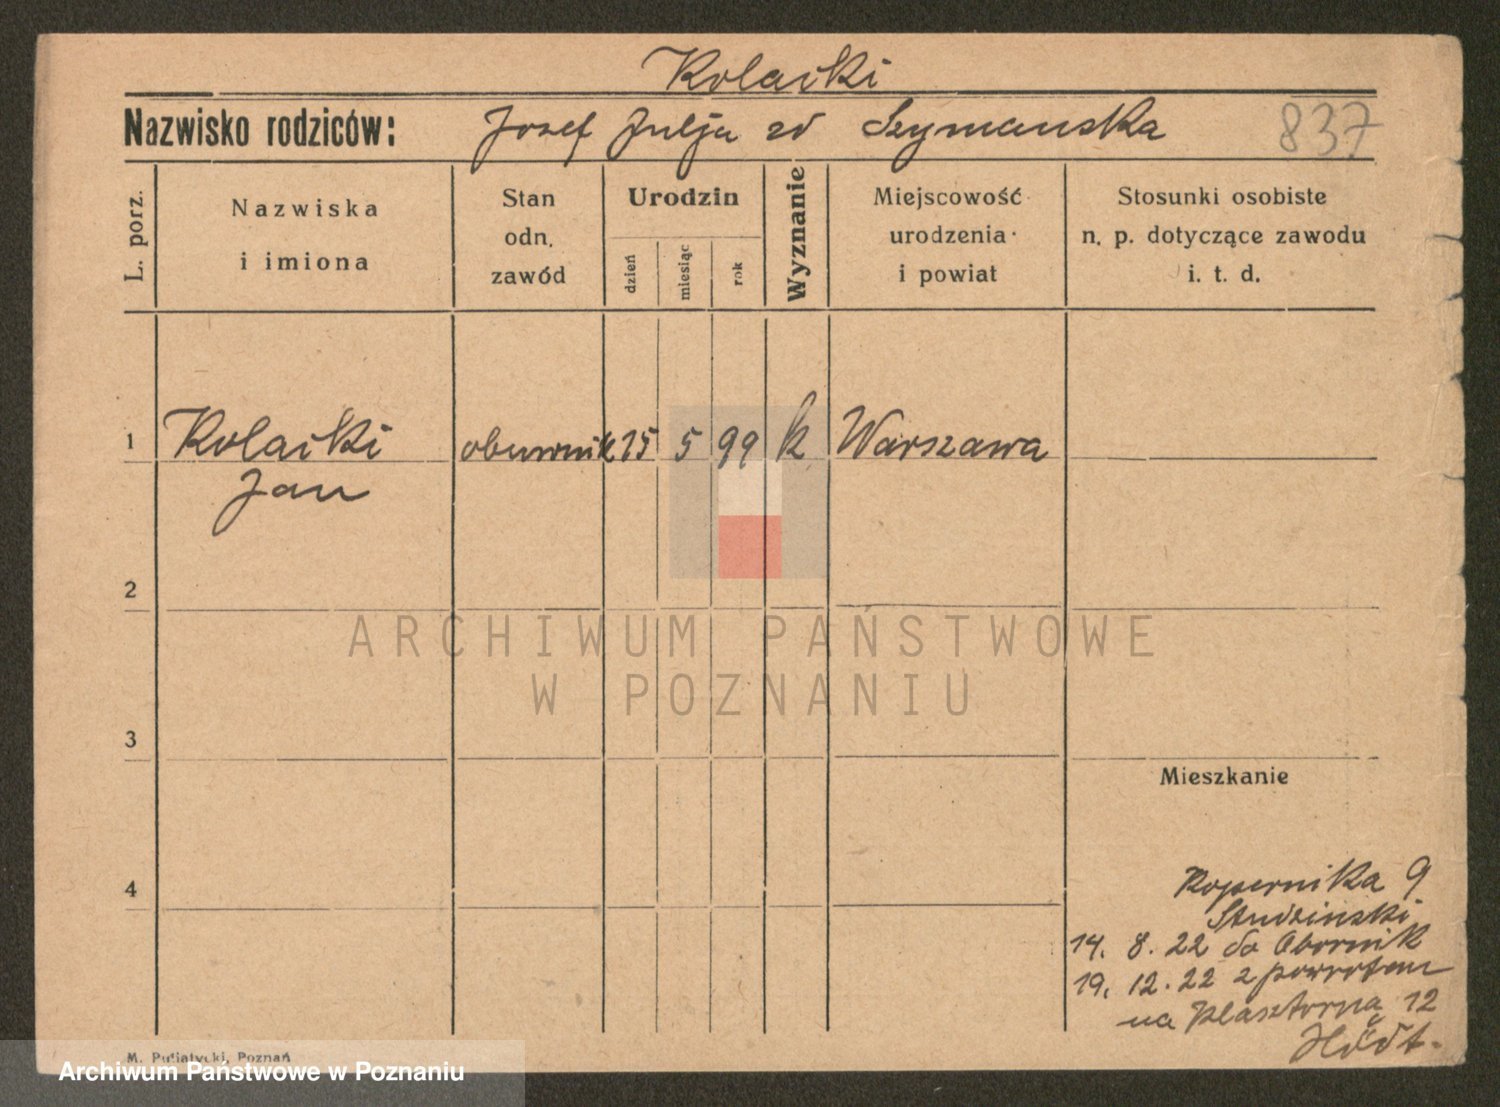 Kolacki
Nazwisko rodziców: Josef Julja zd Szymanska 837
L. porz.
Nazwiska
i imiona
Stan
odn.
zawód
Urodzin
dzień
miesiąc
rok
Wyznanie
Miejscowość
urodzenia
i powiat
Stosunki osobiste
n. p. dotyczące zawodu
i. t. d.
1 Kolacki obuwnik 15 5 99 k Warszawa
Jan
2
ARCHIWUM PAŃSTWOWE
W POZNANIU
3
Mieszkanie
4
Kopernika 9
Studzinski
14. 8. 22 do Obornik
19. 12. 22 z powrotem
na Klasztorną 12
M. Putiatycki, Poznań
Archiwum Państwowe w Poznaniu